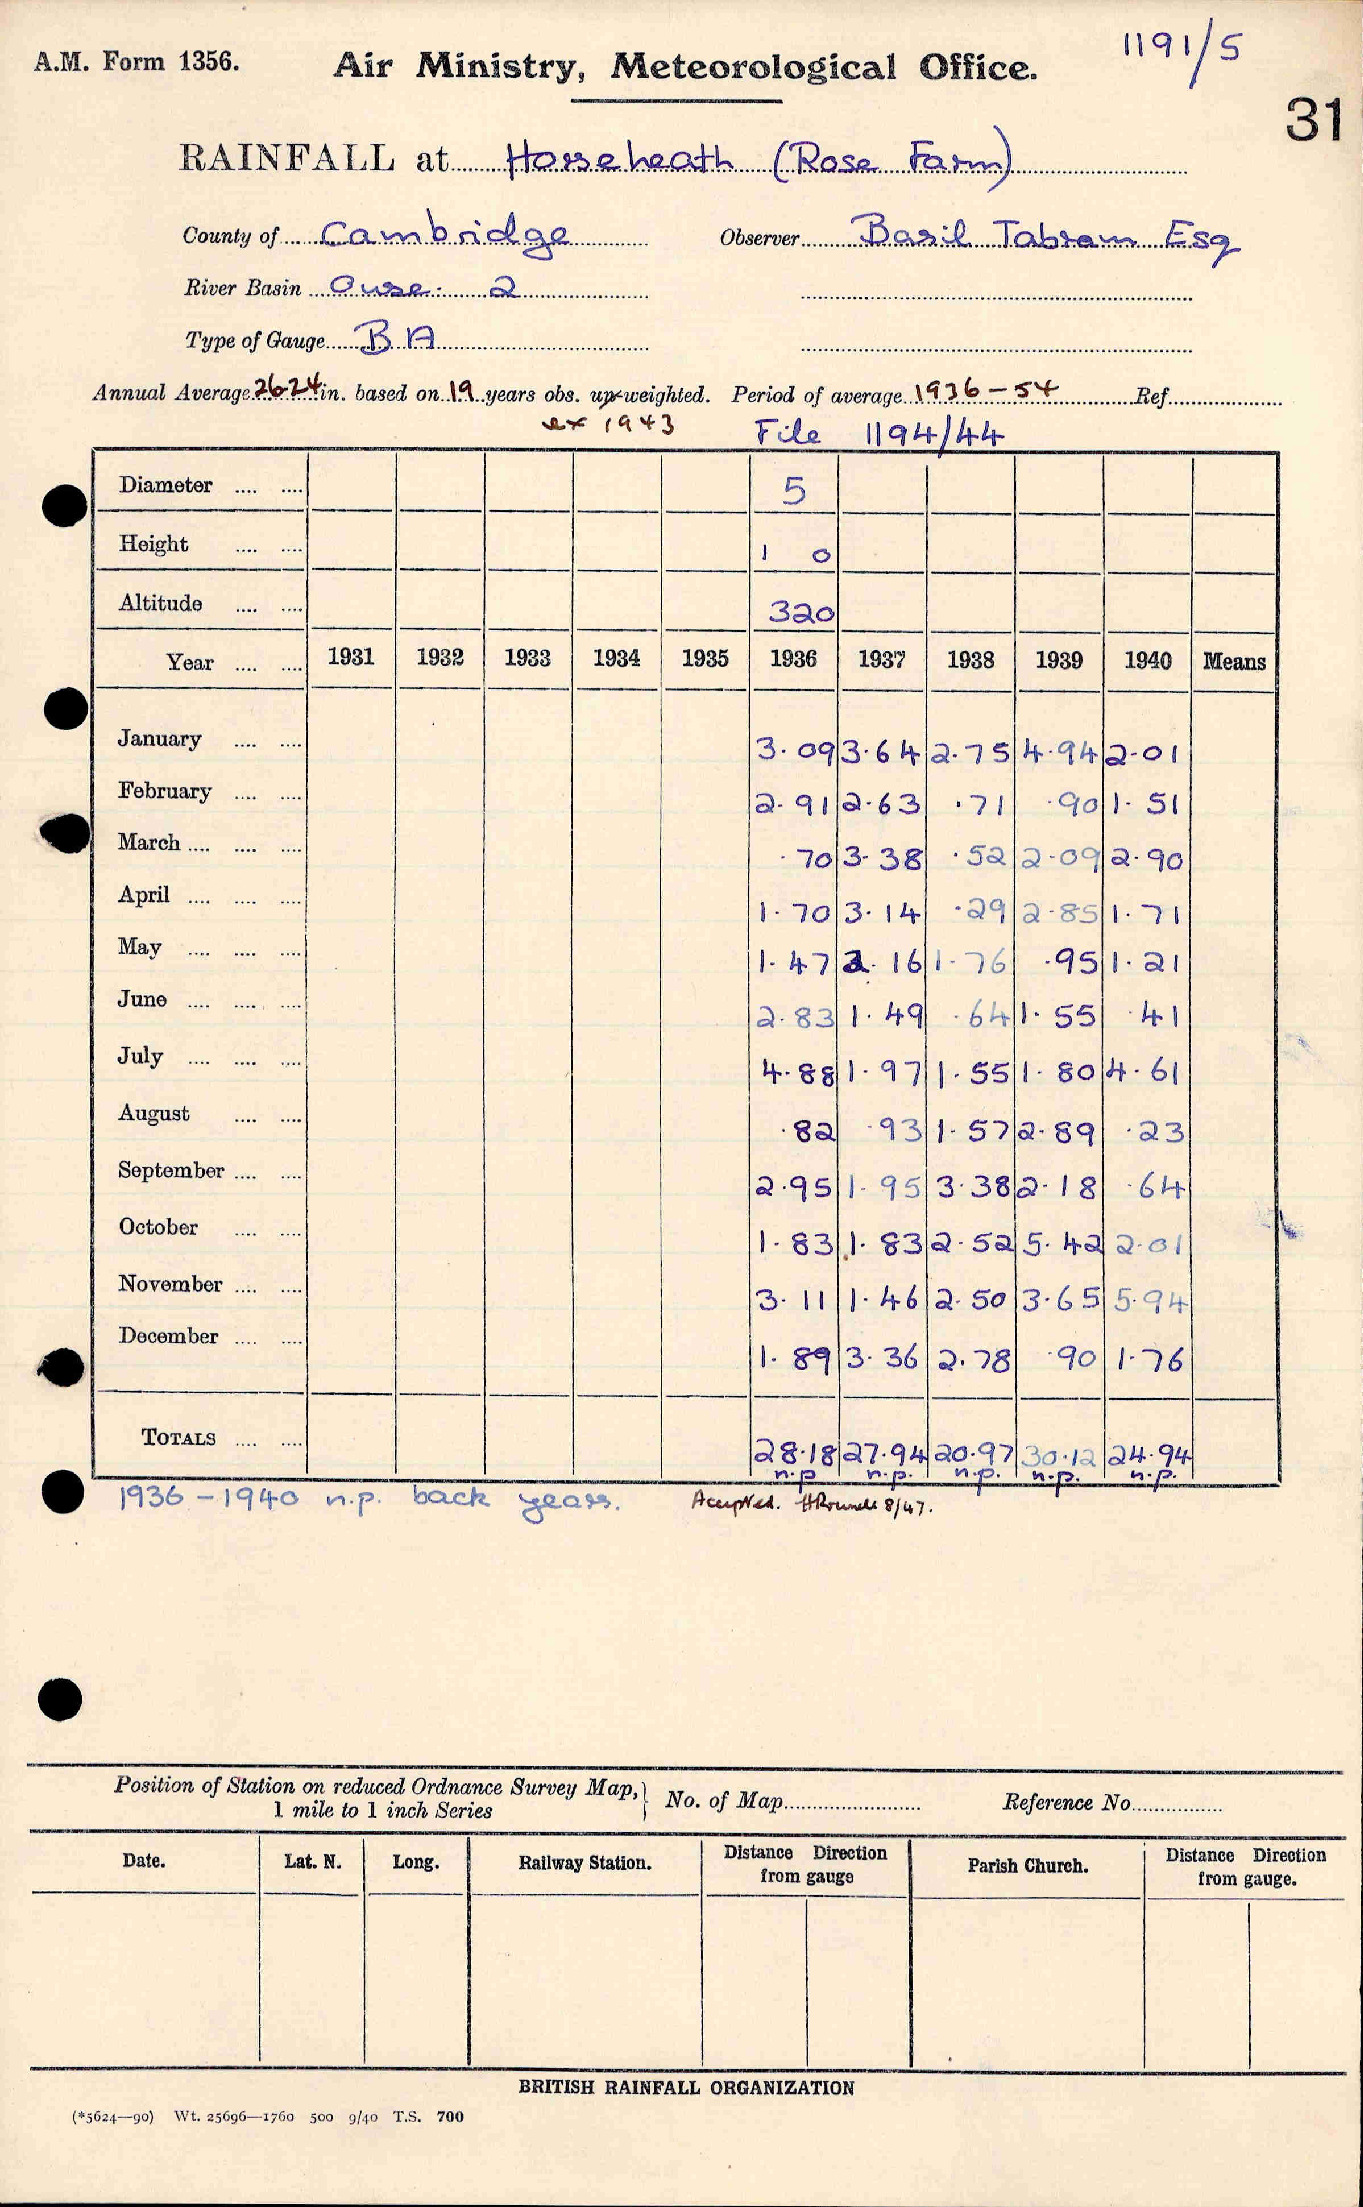 1191/5
A.M. Form 1356. Air Ministry, Meteorological Office.
31
RAINFALL at Horseheath (Rose Farm)
County of Cambridge Observer Basil Tabram Esq
River Basin Ouse. 2
Type of Gauge B A
Annual Average 26.24 in. based on 19 years obs. up-weighted. Period of average 1936 - 54 Ref
ex 1943 File 1194/44
Diameter .... .... 5
Height .... .... 1 0
Altitude .... .... 320
Year .... .... 1931 1932 1933 1934 1935 1936 1937 1938 1939 1940 Means
January .... .... 3.09 3.64 2.75 4.94 2.01
February .... .... 2.91 2.63 .71 .90 1.51
March .... .... .... .70 3.38 .52 2.09 2.90
April .... .... .... 1.70 3.14 .29 2.85 1.71
May .... .... .... 1.47 2.16 1.76 .95 1.21
June .... .... .... 2.83 1.49 .64 1.55 .41
July .... .... .... 4.88 1.97 1.55 1.80 4.61
August .... .... .82 .93 1.57 2.89 .23
September .... .... 2.95 1.95 3.38 2.18 .64
October .... .... 1.83 1.83 2.52 5.42 2.01
November .... .... 3.11 1.46 2.50 3.65 5.94
December .... .... 1.89 3.36 2.78 .90 1.76
TOTALS .... .... 28.18 27.94 20.97 30.12 24.94
n.p n.p. n.p. n.p. n.p.
1936 - 1940 n.p. back years. Accepted. 8/47.
Position of Station on reduced Ordnance Survey Map,
1 mile to 1 inch Series } No. of Map Reference No
Date. Lat. N. Long. Railway Station. Distance Direction from gauge Parish Church. Distance Direction from gauge.
BRITISH RAINFALL ORGANIZATION
(*5624—90) Wt. 25696—1760 500 9/40 T.S. 700